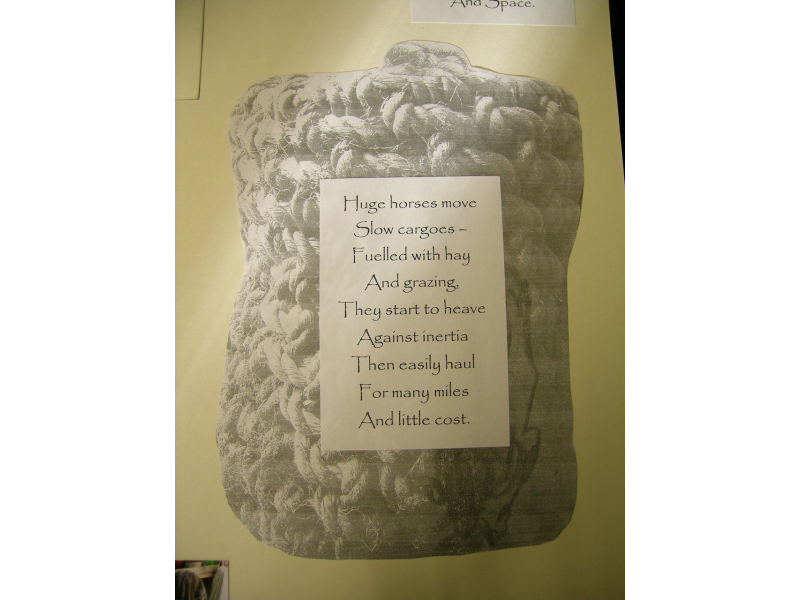 And Space.
Huge horses move
Slow cargoes –
Fuelled with hay
And grazing,
They start to heave
Against inertia
Then easily haul
For many miles
And little cost.